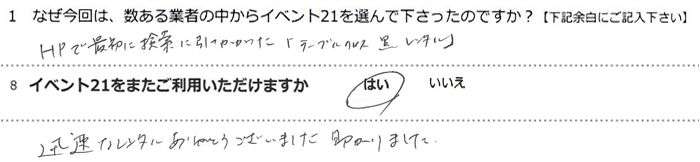 1 なぜ今回は、数ある業者の中からイベント21を選んで下さったのですか？【下記余白にご記入下さい】
HPで最初に検索に引っかかった「テーブルクロス 黒 レンタル」
8 イベント21をまたご利用いただけますか はい いいえ
迅速なレンタルありがとうございました 助かりました。